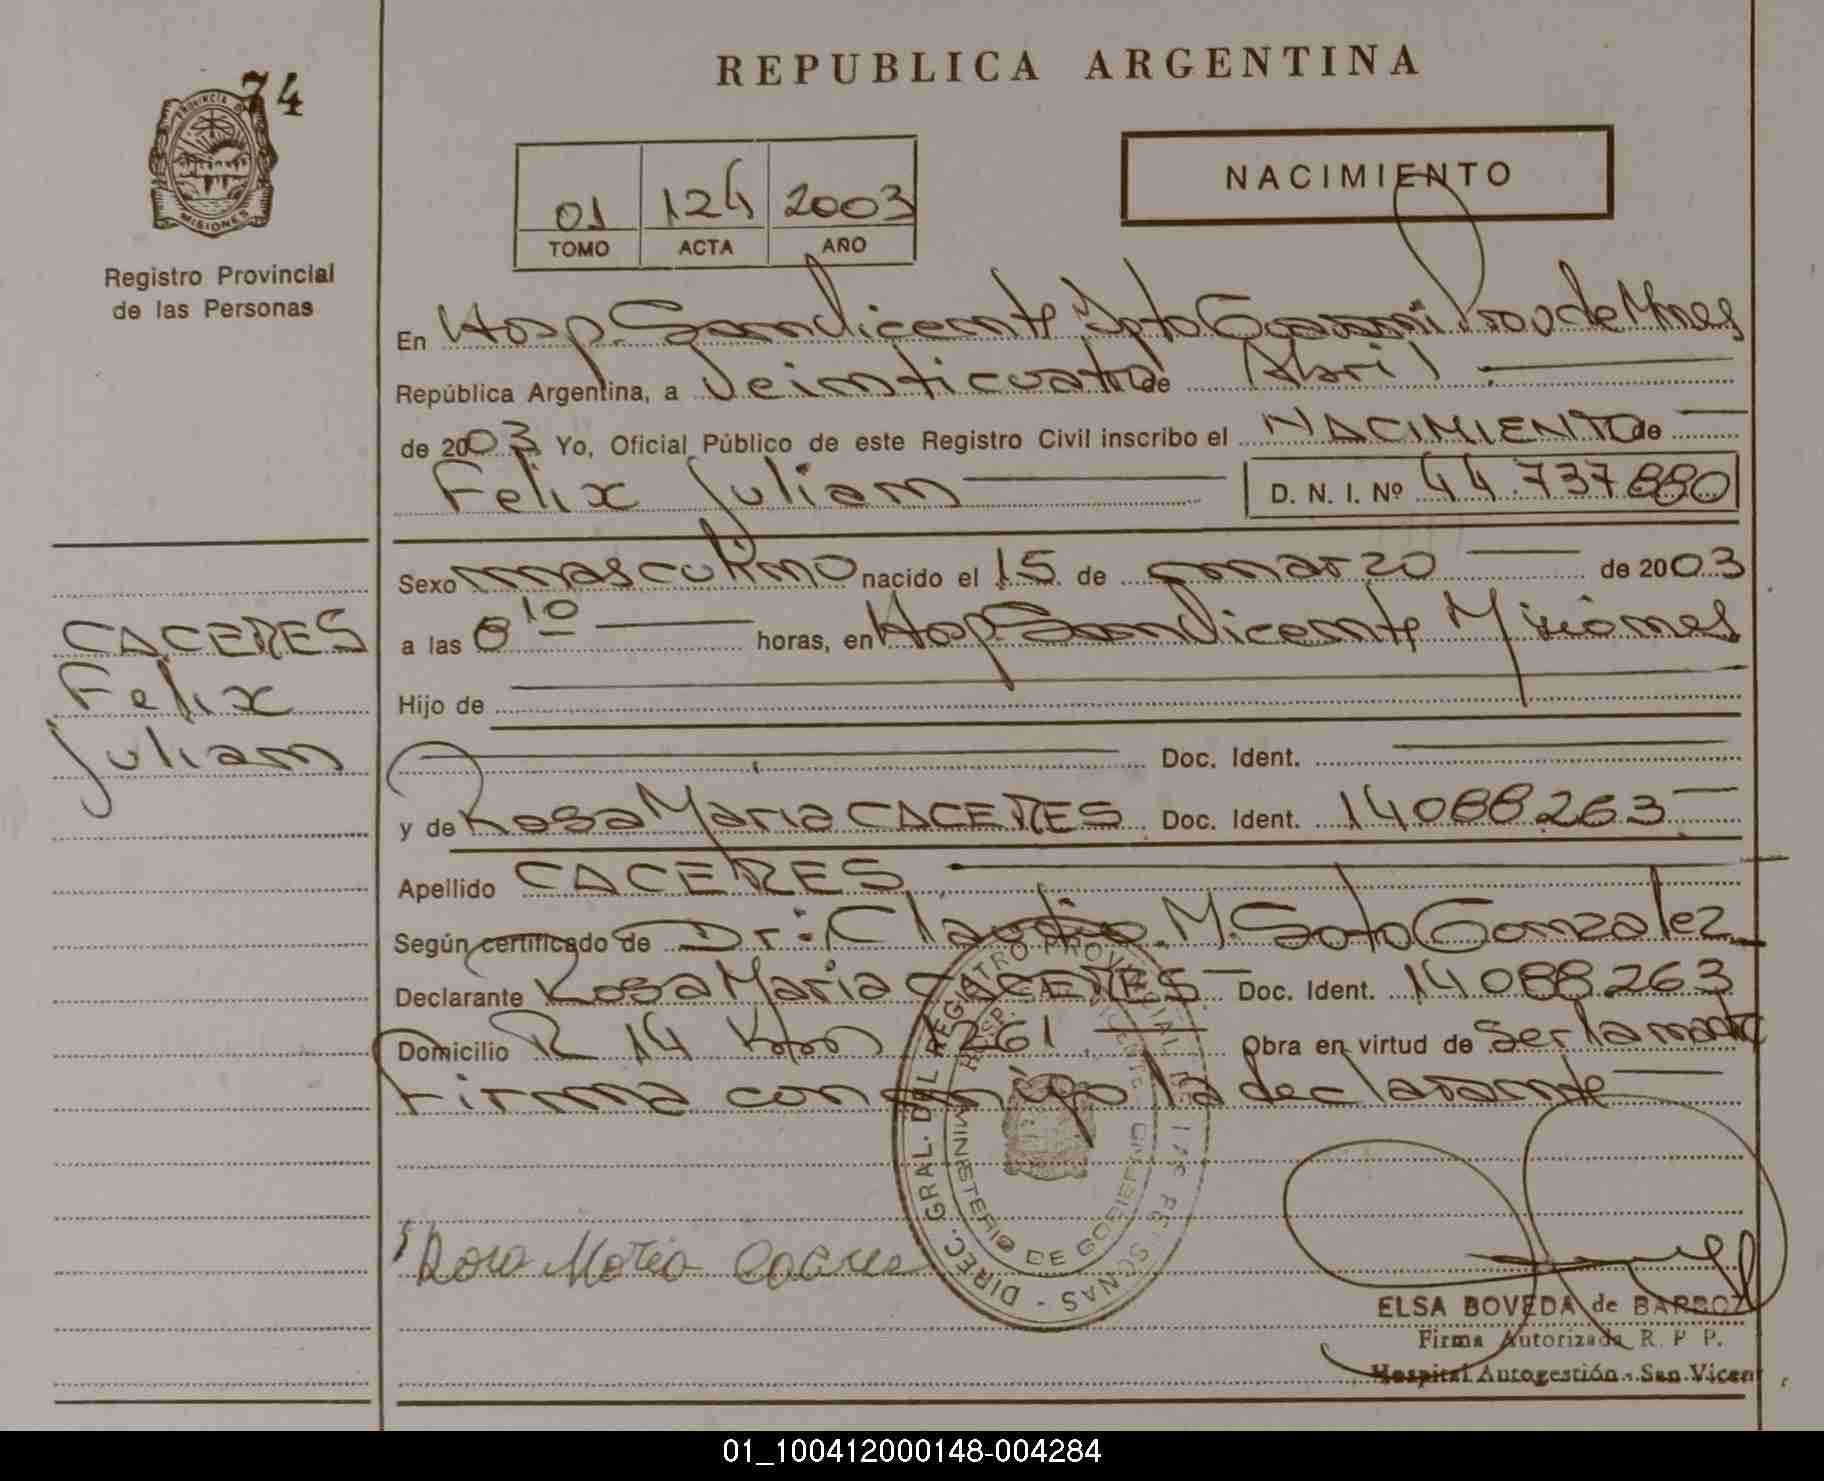 74
PROVINCIA DE
MISIONES
Registro Provincial
de las Personas
REPUBLICA ARGENTINA
NACIMIENTO
01 124 2003
TOMO ACTA AÑO
En Hosp. San Vicente Dpto Guarani Prov de Mnes
República Argentina, a Veinticuatro de Abril
de 2003 Yo, Oficial Público de este Registro Civil inscribo el NACIMIENTO de
Felix Julian D. N. I. Nº 44.737.880
Sexo masculino nacido el 15 de marzo de 2003
a las 8 10 horas, en Hosp San Vicente Misiones
Hijo de
Doc. Ident.
y de Rosa Maria CACERES Doc. Ident. 14088263
Apellido CACERES
Según certificado de Dr: Claudio M. Soto Gonzalez
Declarante Rosa Maria CACERES Doc. Ident. 14088263
Domicilio R 14 Km 1261 Obra en virtud de ser la madre
Firma conmigo la declarante
CACERES
Felix
Julian
DIREC. GRAL. DEL REGISTRO PROVINCIAL DE LAS PERSONAS -
HOSP. VICENTE
MINISTERIO DE GOBIERNO
Rosa Maria Caceres
ELSA BOVEDA de BARBOZ
Firma Autorizada R. P P.
Hospital Autogestión - San Vicen
01_100412000148-004284